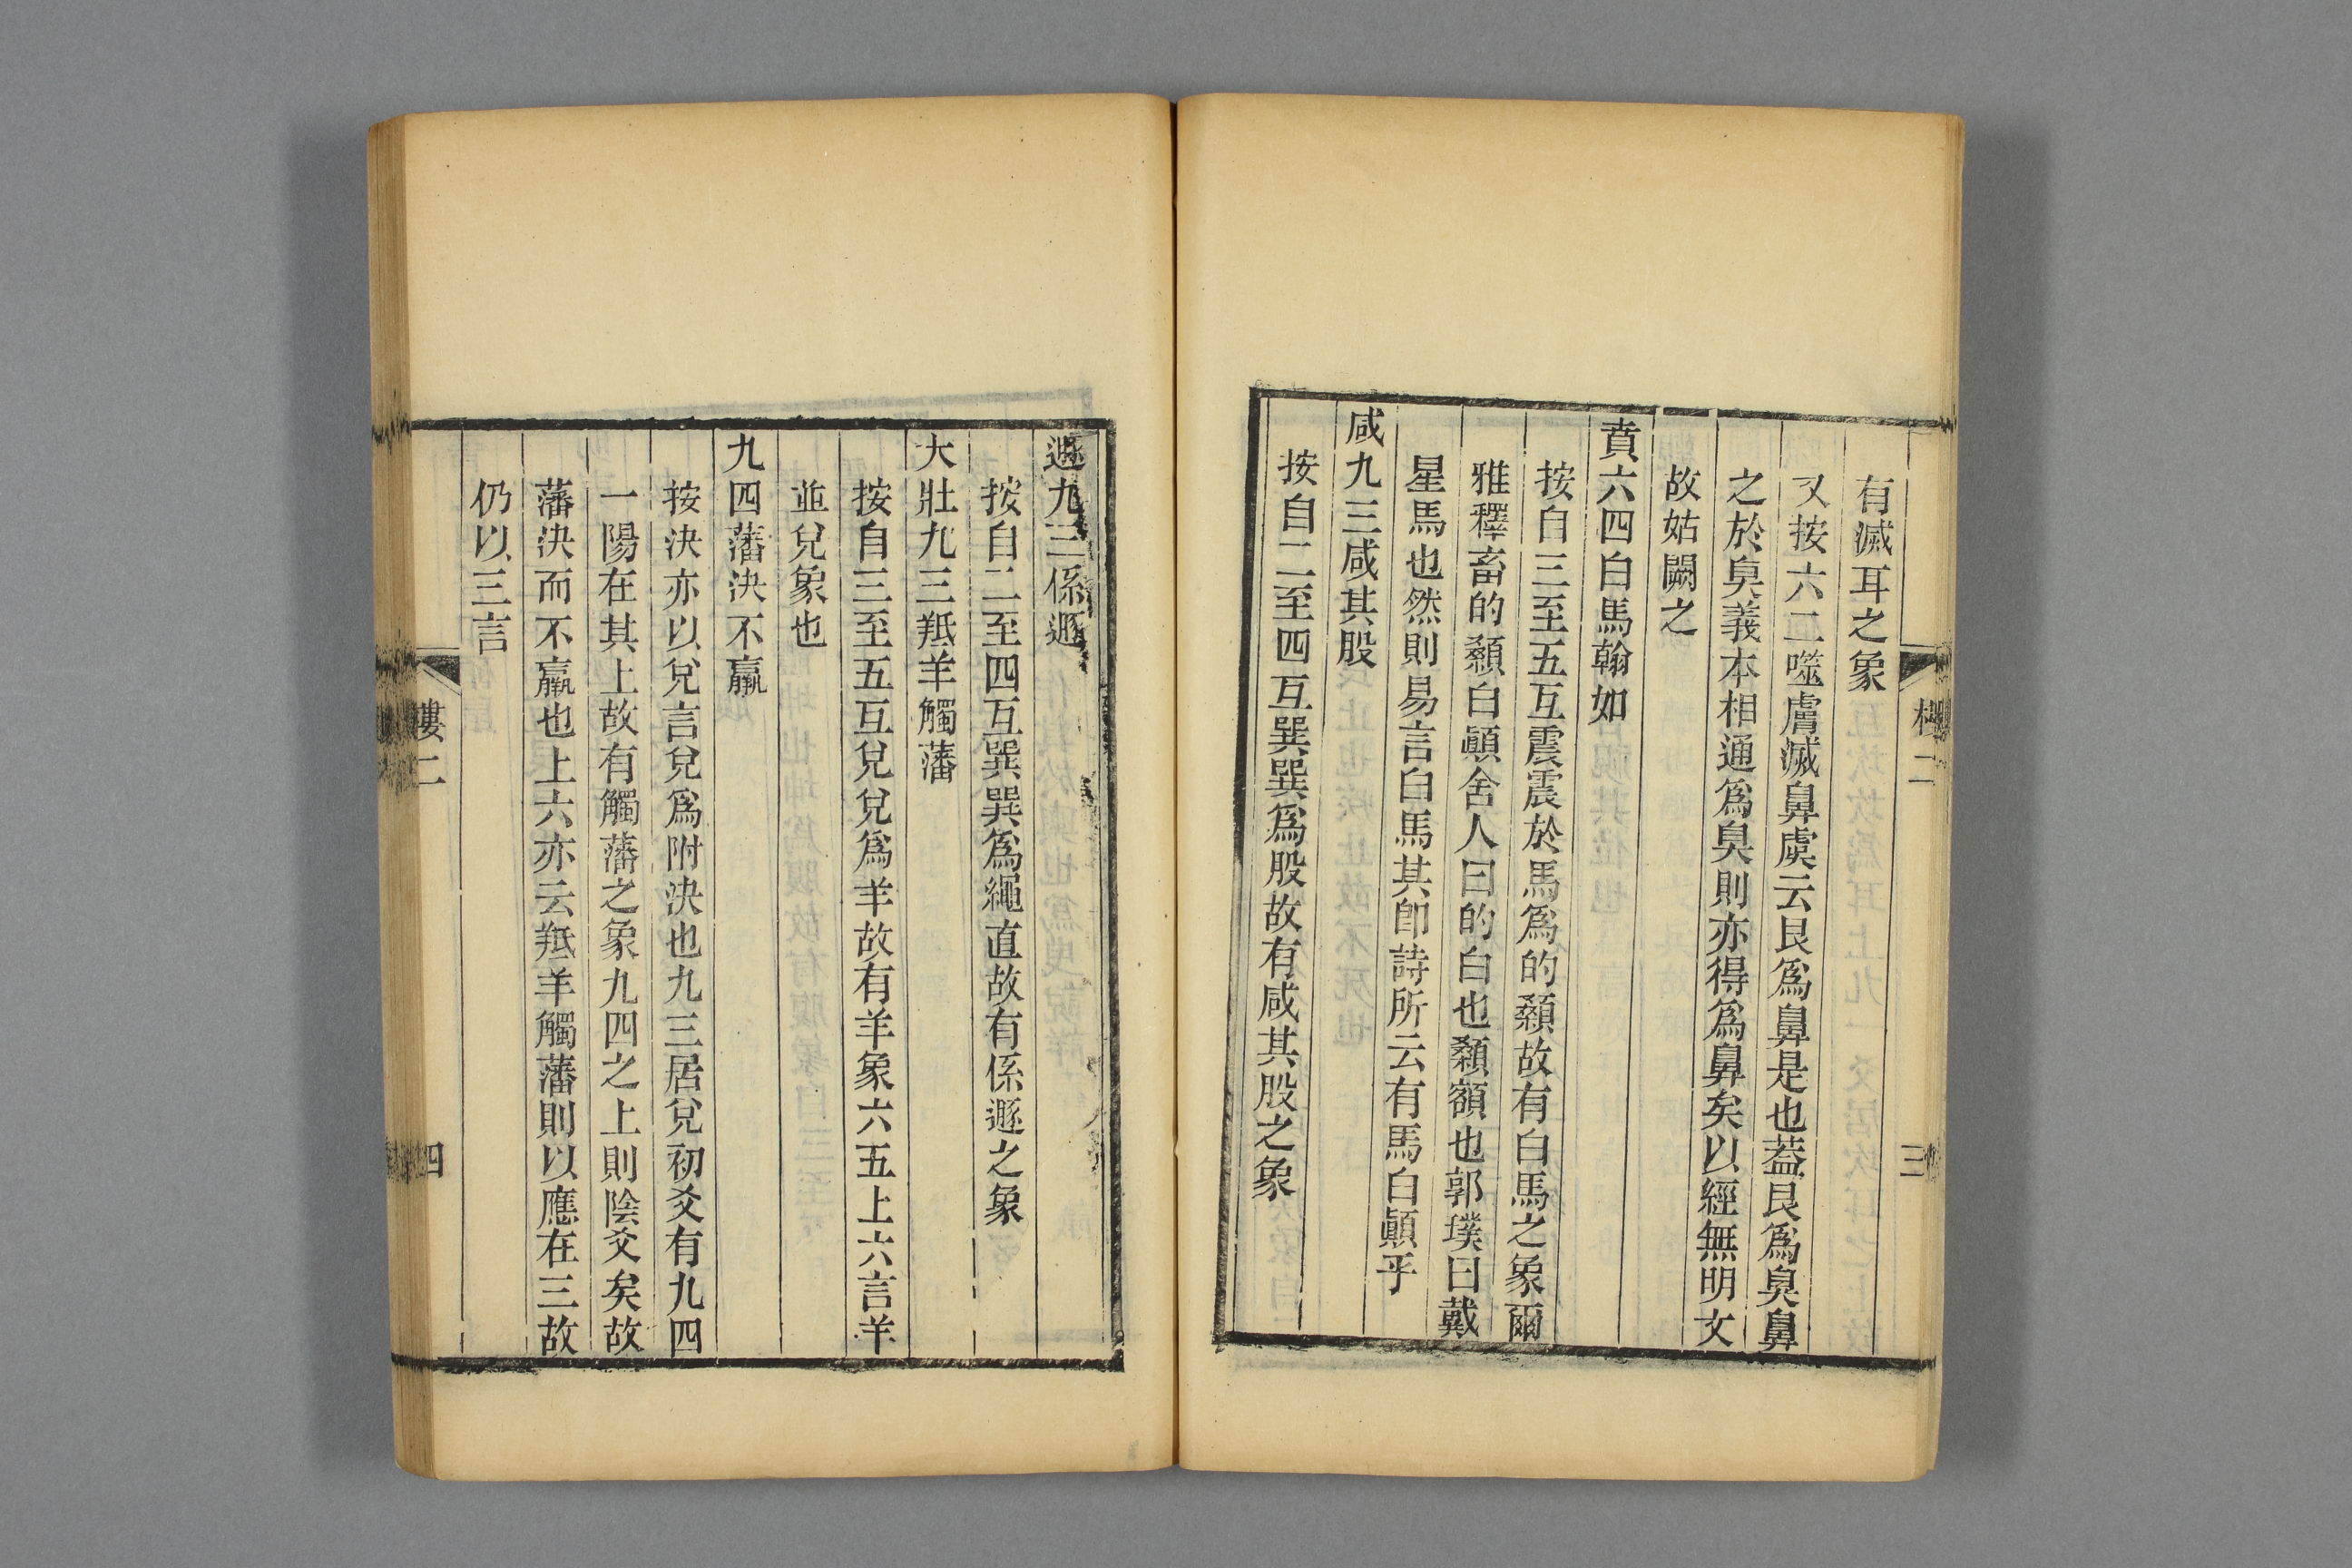 有滅耳之象
又按六二噬膚滅鼻虞云艮爲鼻是也蓋艮爲臭鼻
之於臭義本相通爲臭則亦得爲鼻矣以經無明文
故姑闕之
賁六四白馬翰如
按自三至五互震震於馬爲的顙故有白馬之象爾
雅釋畜的顙白顚舍人曰的白也顙額也郭璞曰戴
星馬也然則易言白馬其卽詩所云有馬白顚乎
咸九三咸其股
按自二至四互巽巽爲股故有咸其股之象
遯九三係遯
按自二至四互巽巽爲繩直故有係遯之象
大壯九三羝羊觸藩
按自三至五互兌兌爲羊故有羊象六五上六言羊
並兌象也
九四藩決不羸
按決亦以兌言兌爲附決也九三居兌初爻有九四
一陽在其上故有觸藩之象九四之上則陰爻矣故
藩決而不羸也上六亦云羝羊觸藩則以應在三故
仍以三言
二
三
二
四